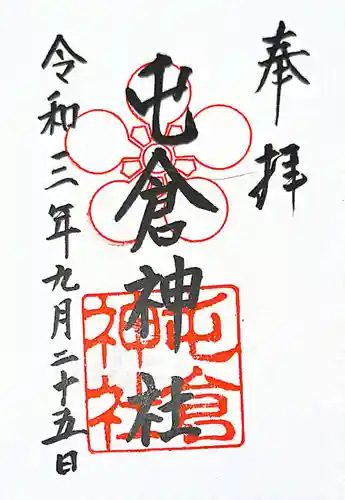 奉拝
屯倉神社
屯倉
神社
令和三年九月二十五日